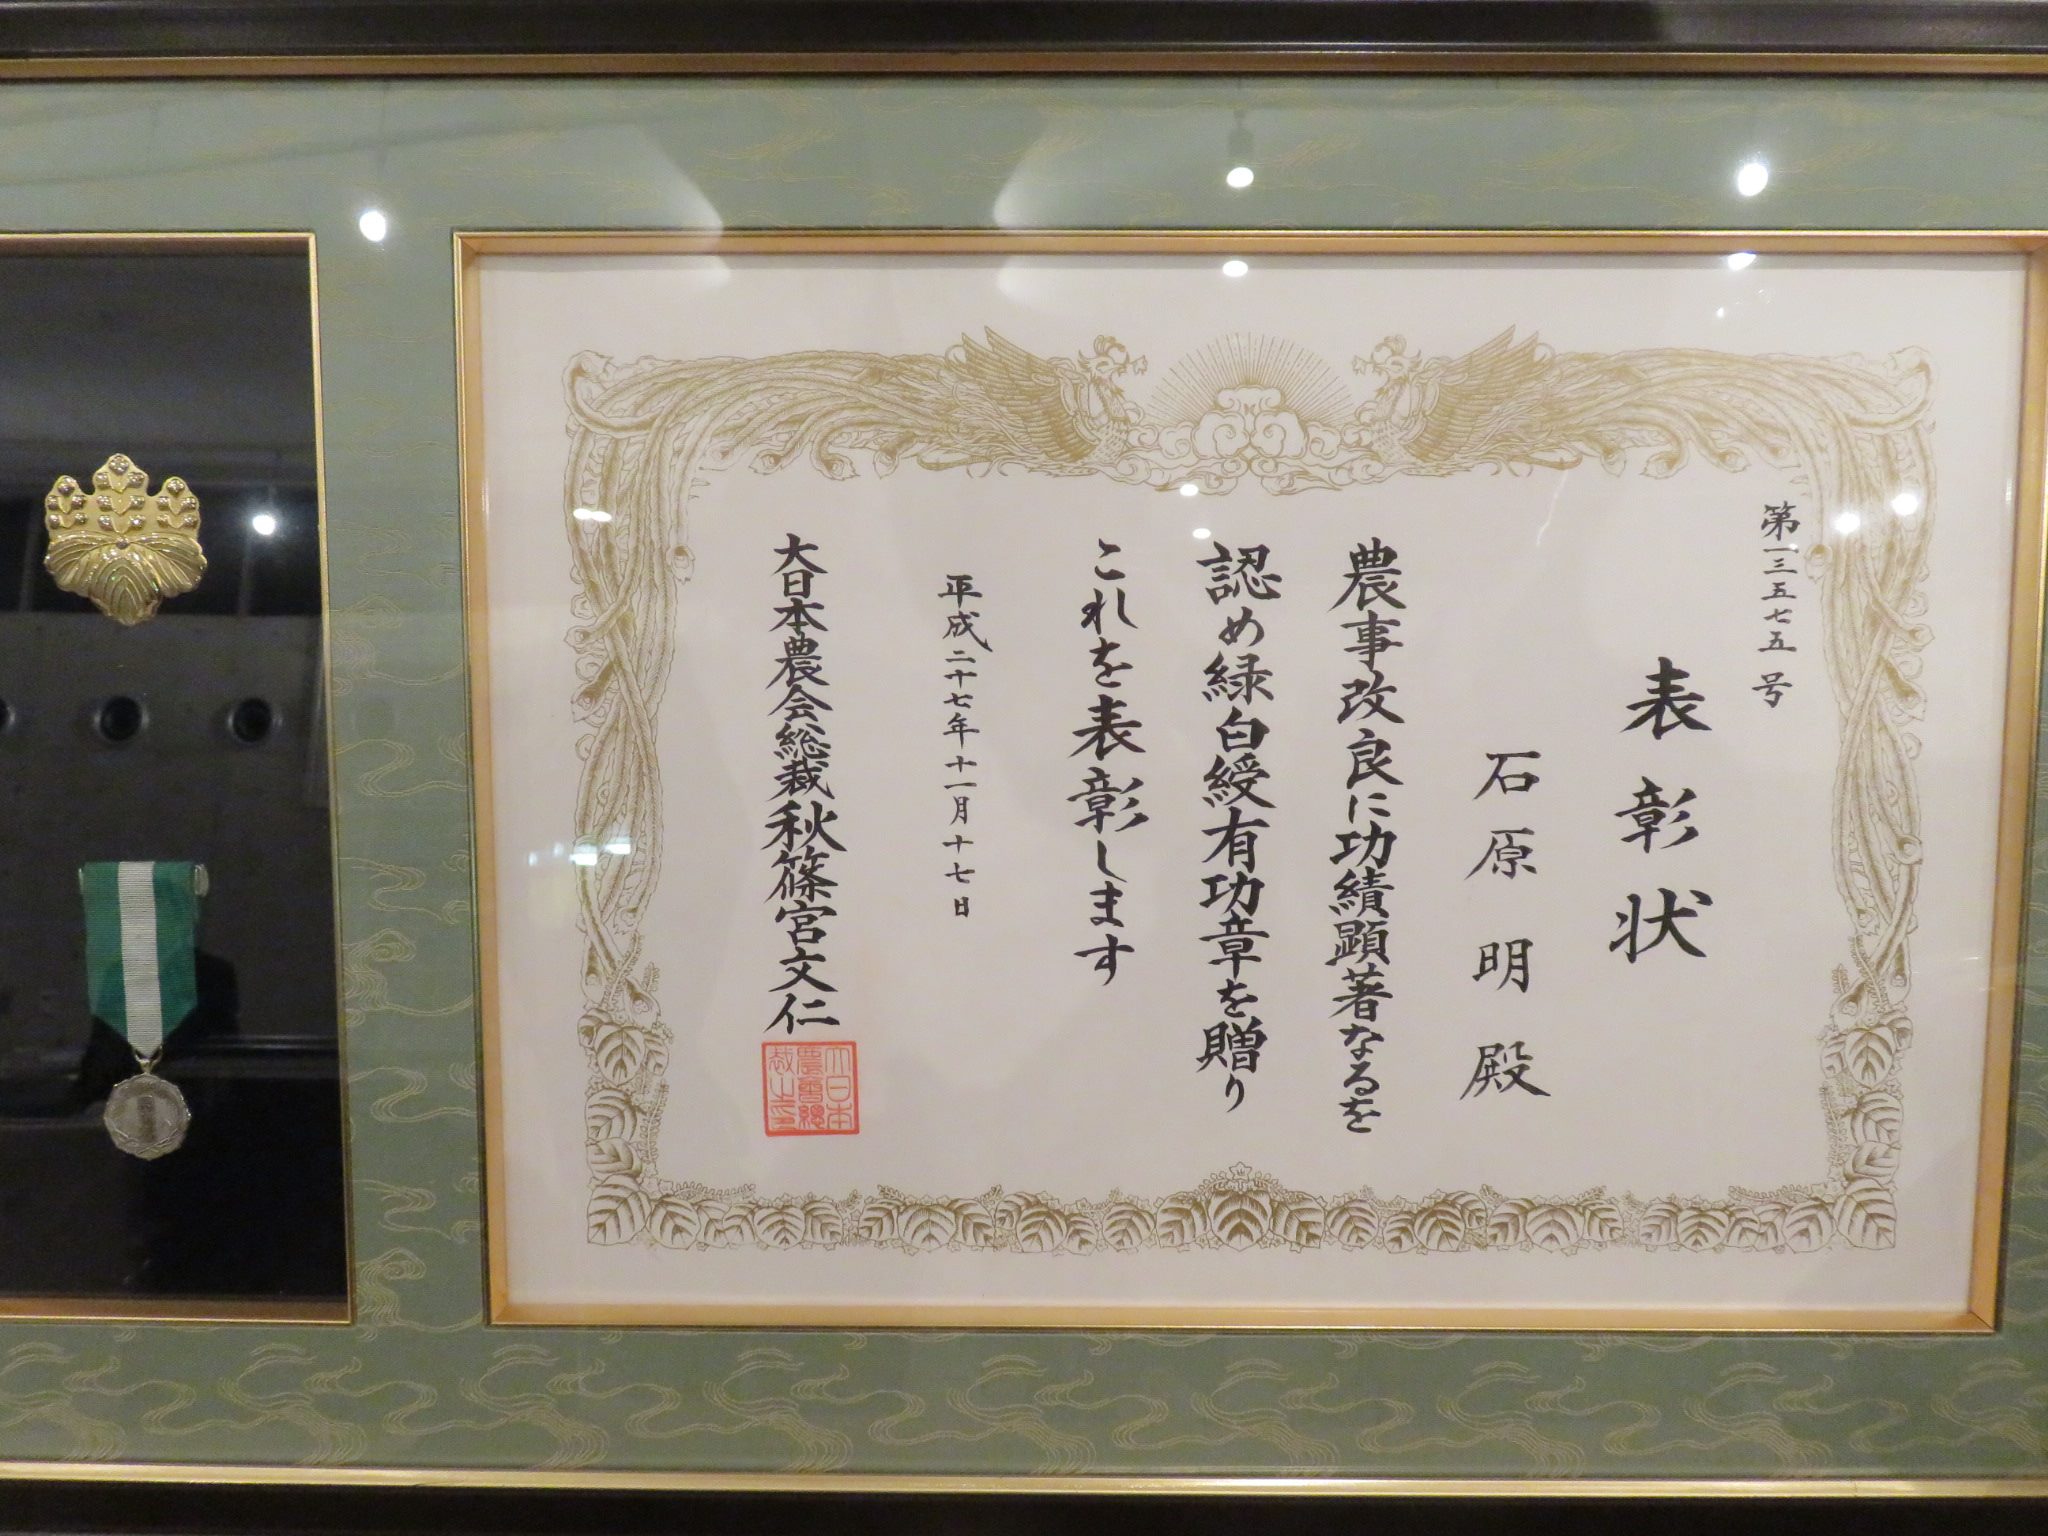 第一三五七五号
表彰状
石原明殿
農事改良に功績顕著なるを
認め緑白綬有功章を贈り
これを表彰します
平成二十七年十一月十七日
大日本農会総裁秋篠宮文仁
大日本
農會總
裁之印